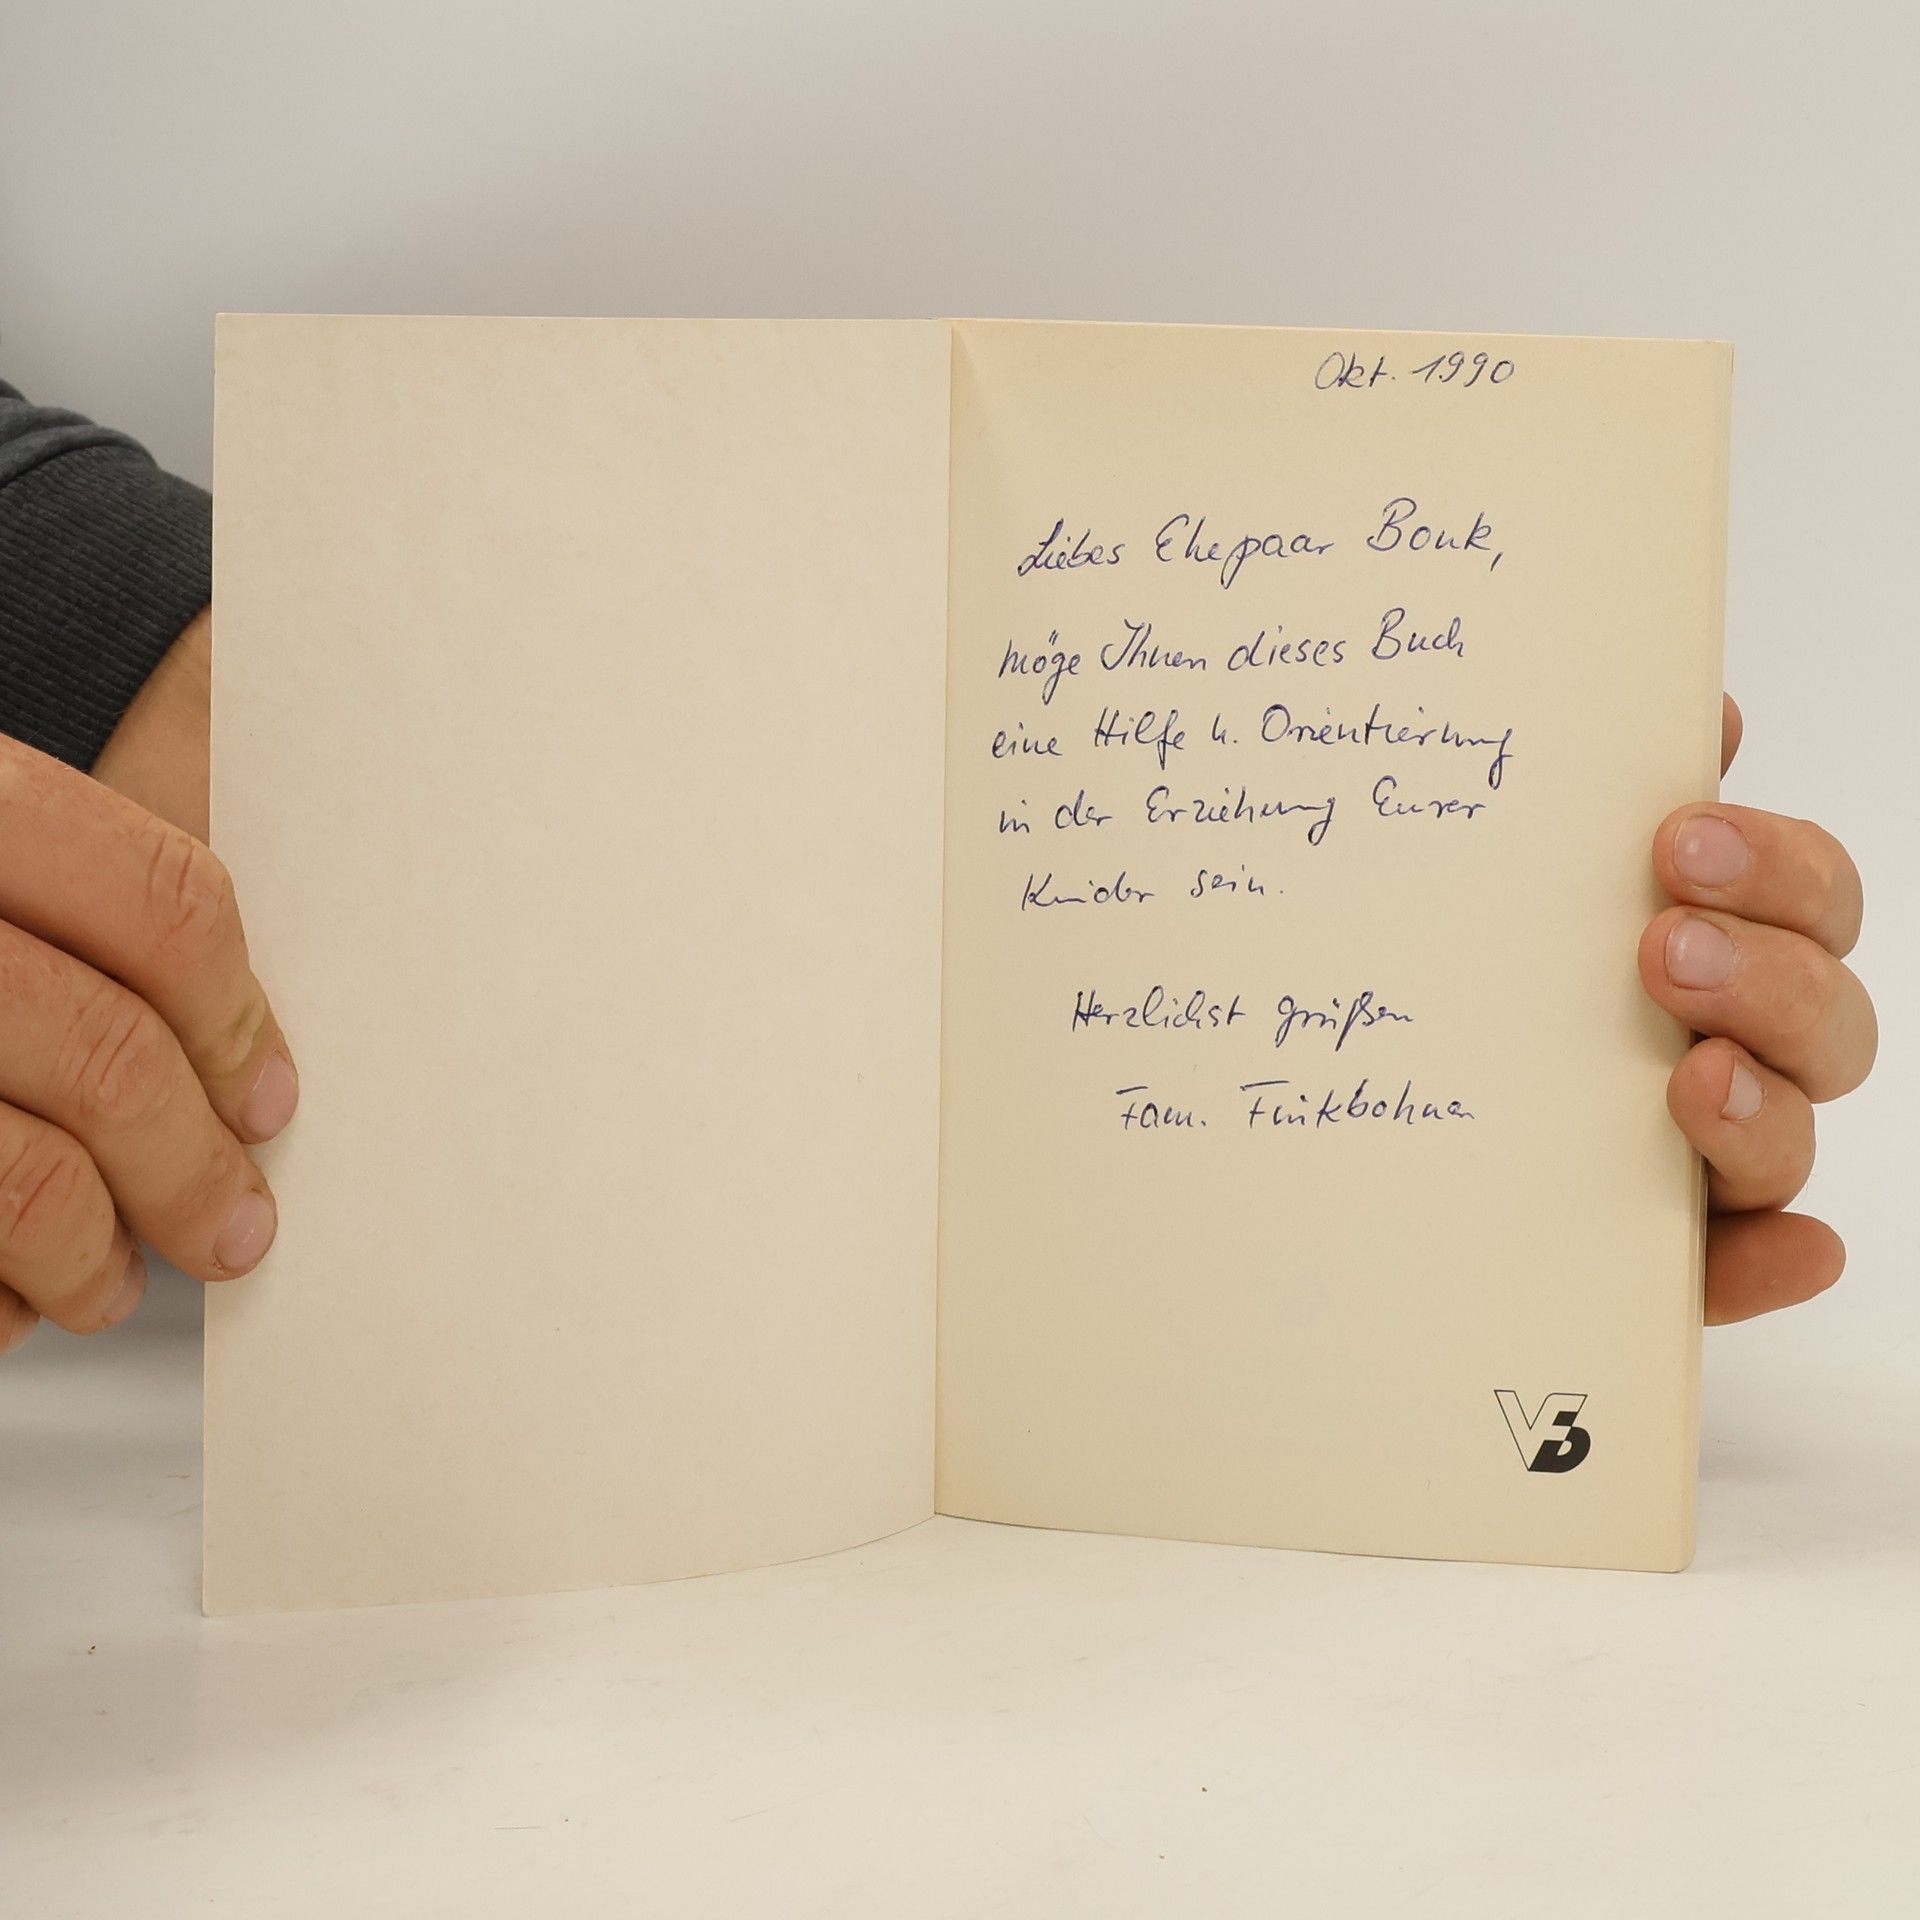 Okt. 1990
Liebes Ehepaar Bonk,
möge Ihnen dieses Buch
eine Hilfe u. Orientierung
in der Erziehung Eurer
Kinder sein.
Herzlichst grüßen
Fam. Finkbohner